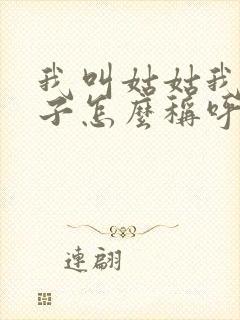 我叫姑姑我
子怎麼稱呼
連翩